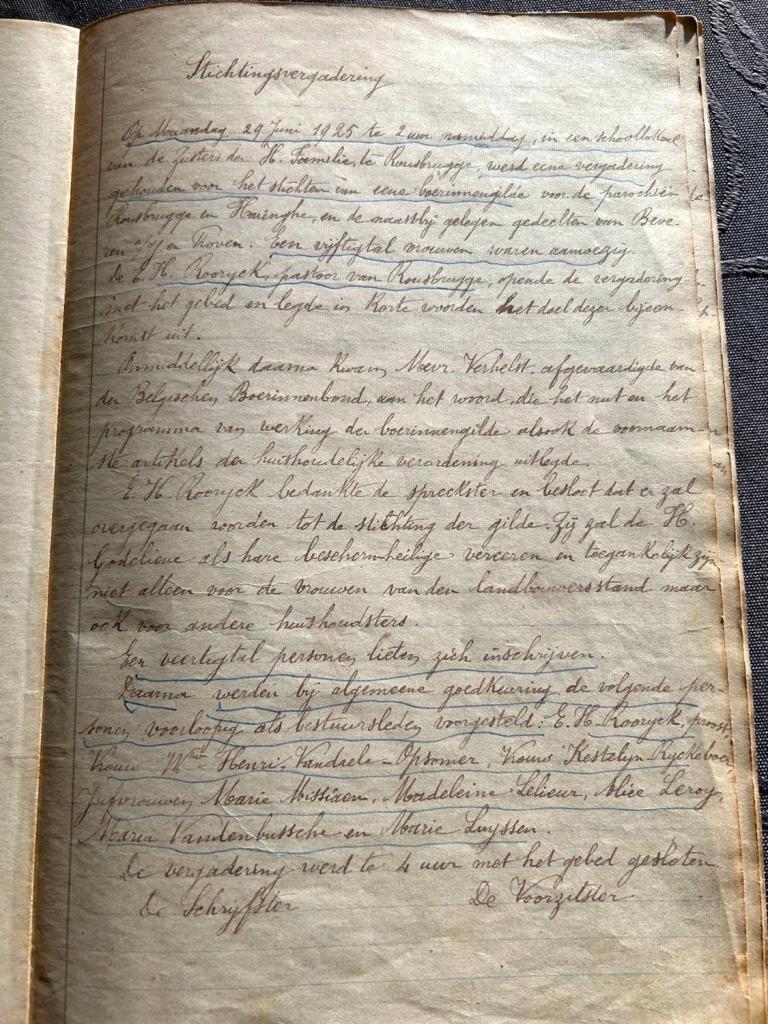 Stichtingsvergadering
Op Maandag 29 Juni 1925 te 2 uur namiddag, in een schoollokaal
van de Zusters der H. Familie, te Rousbrugge, werd eene vergadering
gehouden voor het stichten van eene boerinnengilde voor de parochiën
Rousbrugge en Haringhe, en de naastbij gelegen gedeelten van Beve-
ren a/y en Proven. Een vijftigtal vrouwen waren aanwezig
De E. H. Rooryck, pastoor van Rousbrugge, opende de vergadering
met het gebed en legde in korte woorden het doel dezer bijeen-
komst uit.
Onmiddellijk daarna kwam Mevr. Verhelst, afgevaardigde van
den Belgischen Boerinnenbond, aan het woord, die het nut en het
programma van werking der boerinnengilde alsook de voornaam-
ste artikels der huishoudelijke verordening uitlegde.
E. H. Rooryck bedankte de spreekster en besloot dat er zal
overgegaan worden tot de stichting der gilde. Zij zal de H.
Godelieve als hare beschermheilige vereeren en toegankelijk zijn
niet alleen voor de vrouwen van den landbouwersstand maar
ook voor andere huishoudsters.
Een veertigtal personen lieten zich inschrijven.
Daarna werden bij algemeene goedkeuring de volgende per-
sonen voorloopig als bestuursleden voorgesteld: E. H. Rooryck, proost,
Vrouw Henri Vandaele-Opsomer, Vrouw Kestelyn Ryckeboer,
Jufvrouwen Marie Missiaen, Madeleine Lelieur, Alice Leroy,
Maria Vandenbussche en Marie Luyssen.
De vergadering werd te 4 uur met het gebed gesloten
De Schrijfster De Voorzitster